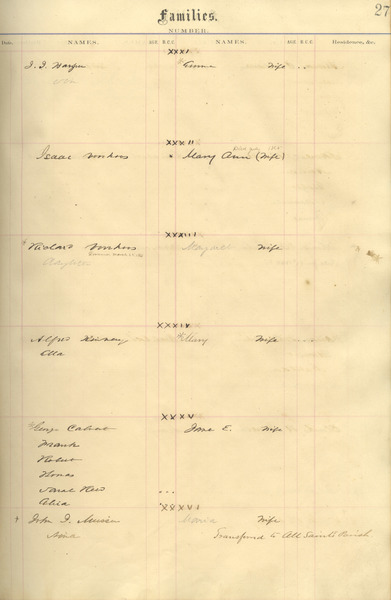 27
Families.
NUMBER.
Date. NAMES. AGE. B.C.C. NAMES. AGE. B.C.C. Residences, &c.
XXXI
J. J. Harper Emma Wife
XXXII
Isaac Voorhees Mary Ann (Wife)
XXXIII
Richard Voorhees Margaret Wife
XXXIV
Alfred Mary Wife
Ella
XXXV
George Calvert Jane E. Wife
Frank
Robert
Thomas
Sarah
Alicia
XXXVI
John J. Maria Wife
Anna Transferred to All Saints Parish